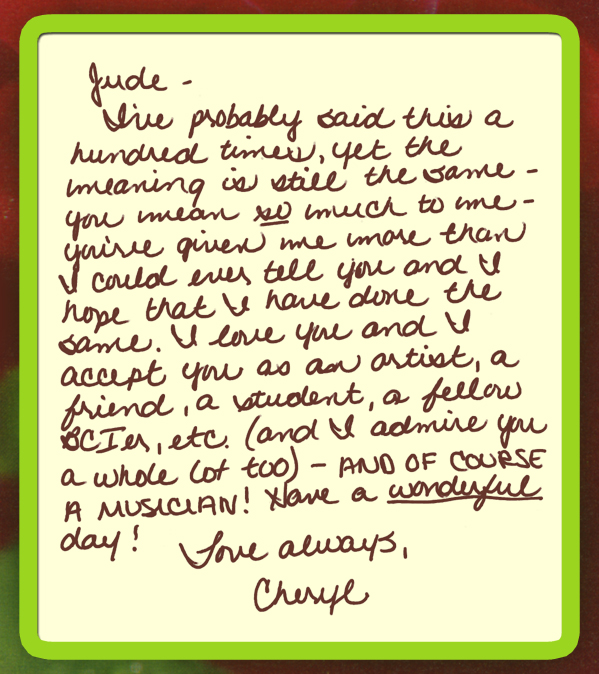 Jude -
I've probably said this a
hundred times, yet the
meaning is still the same -
you mean so much to me -
you've given me more than
I could ever tell you and I
hope that I have done the
same. I love you and I
accept you as an artist, a
friend, a student, a fellow
BCIer, etc. (and I admire you
a whole lot too) - AND OF COURSE
A MUSICIAN! Have a wonderful
day!
Love always,
Cheryl